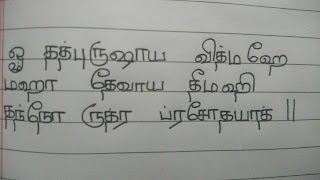 ஓ தத்புருஷாய வித்மஹே
மஹா தேவாய தீமஹி
தந்நோ ருத்ர ப்ரசோதயாத் ||